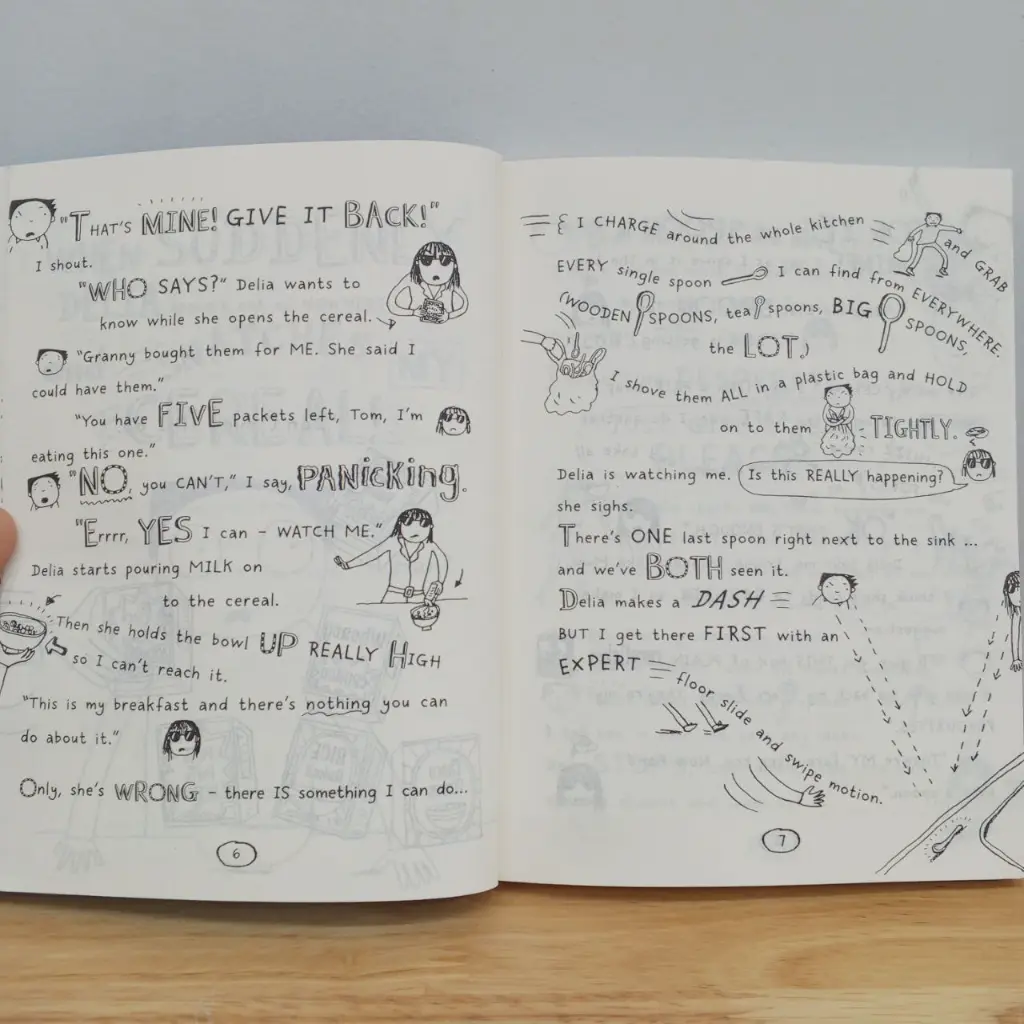 "THAT'S MINE! GIVE IT BACK!"
I shout.
"WHO SAYS?" Delia wants to
know while she opens the cereal.
"Granny bought them for ME. She said I
could have them."
"You have FIVE packets left, Tom, I'm
eating this one."
"NO, you CAN'T," I say, PANICKING.
"Errrr, YES I can – WATCH ME."
Delia starts pouring MILK on
to the cereal.
Then she holds the bowl UP REALLY HIGH
so I can't reach it.
"This is my breakfast and there's nothing you can
do about it."
Only, she's WRONG – there IS something I can do...
6
I CHARGE around the whole kitchen
and GRAB
EVERY single spoon I can find from EVERYWHERE.
(WOODEN SPOONS, tea spoons, BIG SPOONS,
the LOT.)
I shove them ALL in a plastic bag and HOLD
on to them TIGHTLY.
Delia is watching me. Is this REALLY happening?
she sighs.
There's ONE last spoon right next to the sink ...
and we've BOTH seen it.
Delia makes a DASH
BUT I get there FIRST with an
EXPERT floor slide and swipe motion.
7